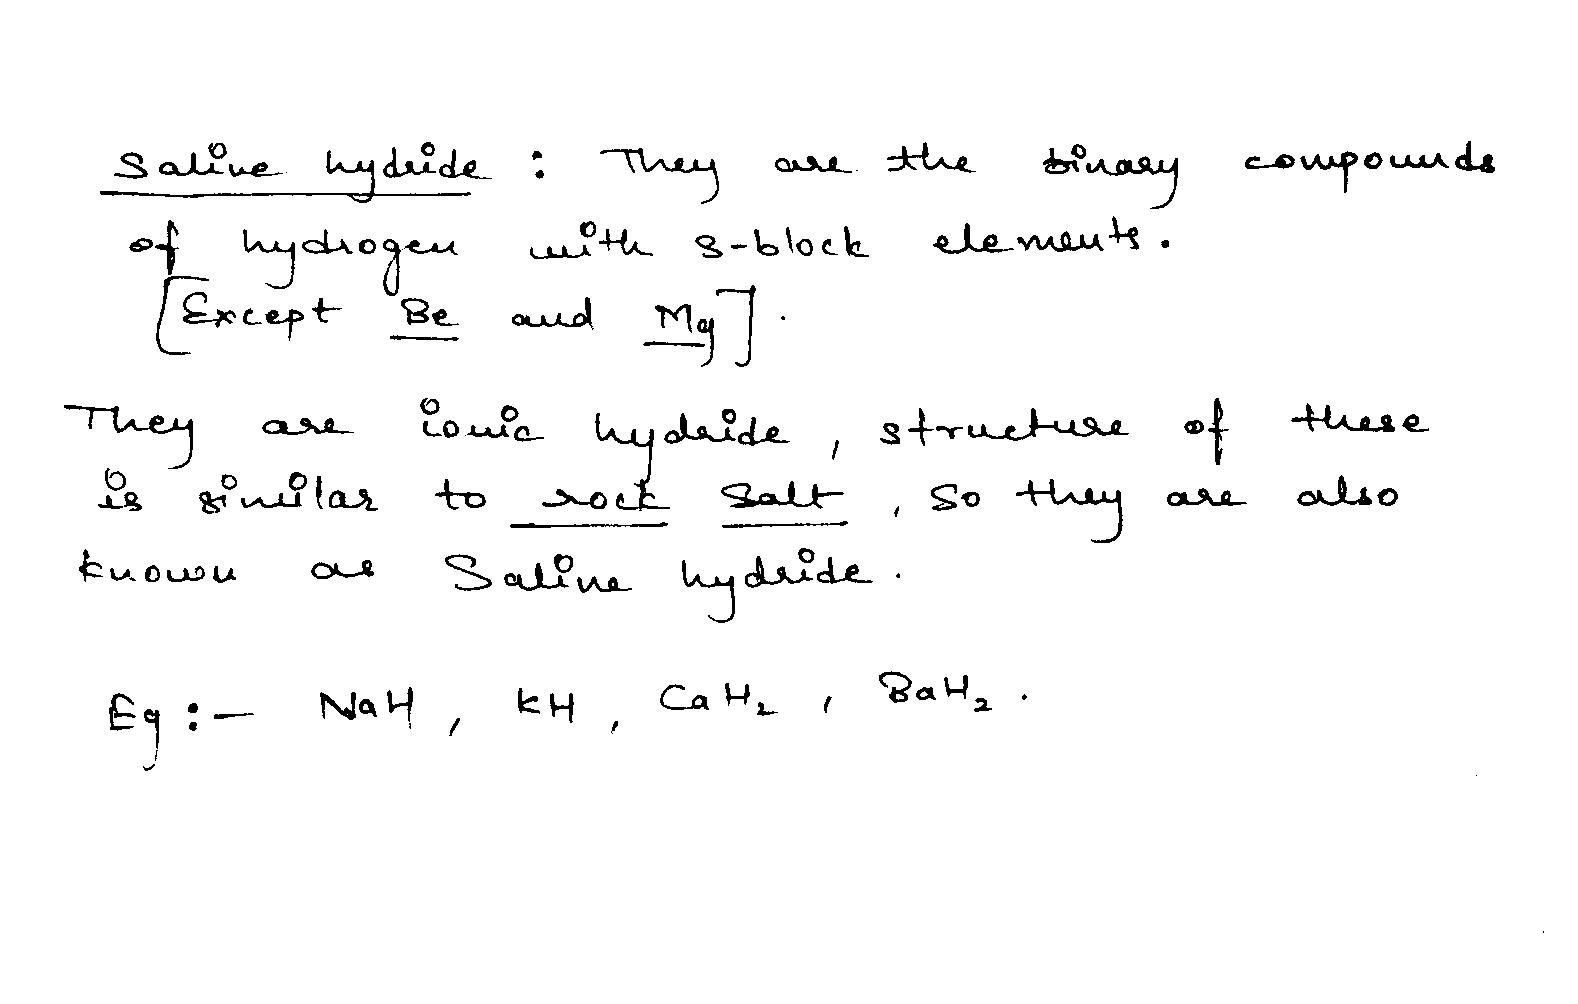 Saline hydride : They are the binary compounds
of hydrogen with s-block elements.
[Except Be and Mg].
They are ionic hydride, structure of these
is similar to rock salt, so they are also
known as Saline hydride.
Eg :- NaH, KH, CaH₂, BaH₂.